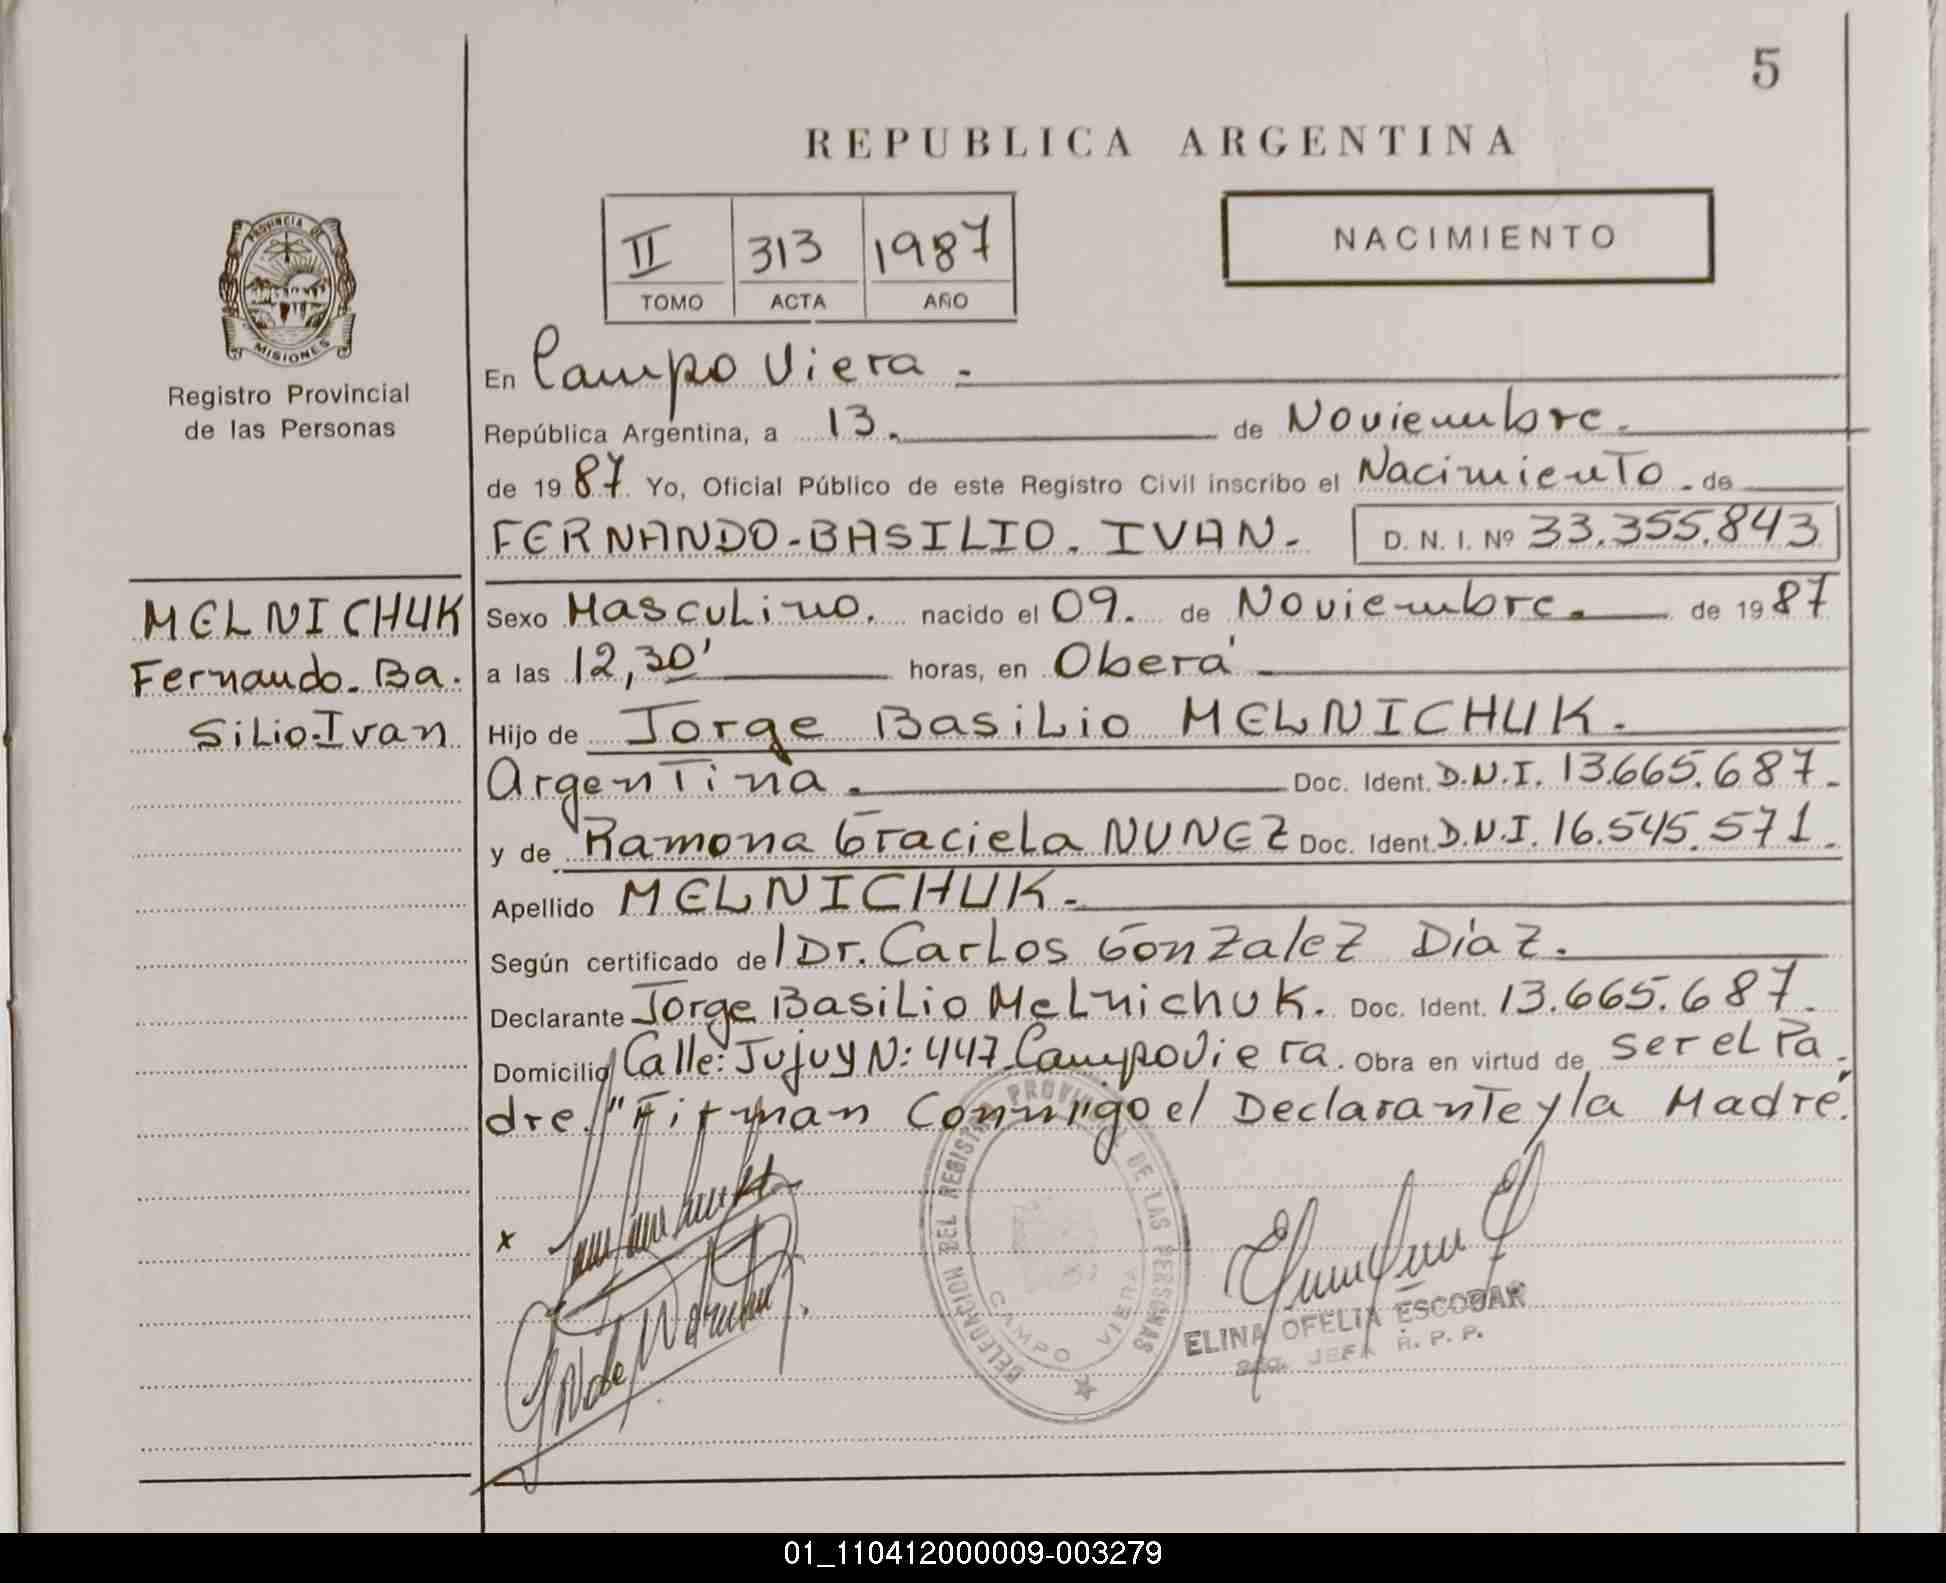 5
REPUBLICA ARGENTINA
II 313 1987
TOMO ACTA AÑO
NACIMIENTO
PROVINCIA DE
MISIONES
Registro Provincial
de las Personas
MELNICHUK
Fernando-Ba.
SiLio-Ivan
En Campo Viera.
República Argentina, a 13. de Noviembre.
de 1987. Yo, Oficial Público de este Registro Civil inscribo el Nacimiento de
FERNANDO-BASILIO-IVAN- D. N. I. Nº 33.355.843
Sexo Masculino. nacido el 09. de Noviembre. de 1987
a las 12,30' horas, en Oberá
Hijo de Jorge Basilio MELNICHUK.
Argentina. Doc. Ident. D.N.I. 13.665.687.-
y de Ramona Graciela NUNEZ Doc. Ident. D.N.I. 16.545.571.-
Apellido MELNICHUK.-
Según certificado de/Dr. Carlos Gonzalez Díaz.
Declarante Jorge Basilio Melnichuk. Doc. Ident. 13.665.687.
Domicilio Calle: Jujuy N: 447 Campo Viera. Obra en virtud de ser el Pa-
dre. "Firman Conmigo el Declarante y la Madre.
x
DELEGACION DEL REGISTRO PROVINCIAL DE LAS PERSONAS
CAMPO VIERA
ELINA OFELIA ESCOBAR
JEFA R. P. P.
01_110412000009-003279